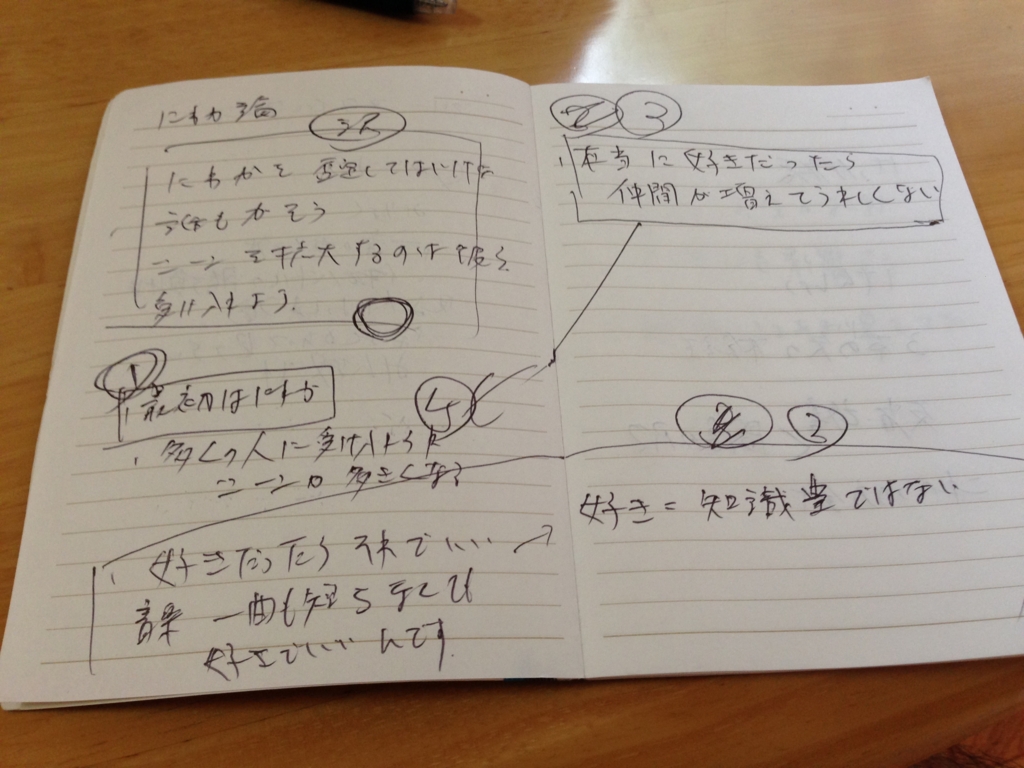 にわか論
にわかを否定してはいけな
シーンを拡大するのは彼ら
受け入れよう
①
最初はにわか
多くの人に受け入れ
シーンは
好きだったらそれでいい →
音楽 一曲も知らなくても
好きでいいんです
③
本当に好きだったら
仲間が増えてうれしくない
好き = 知識量ではない